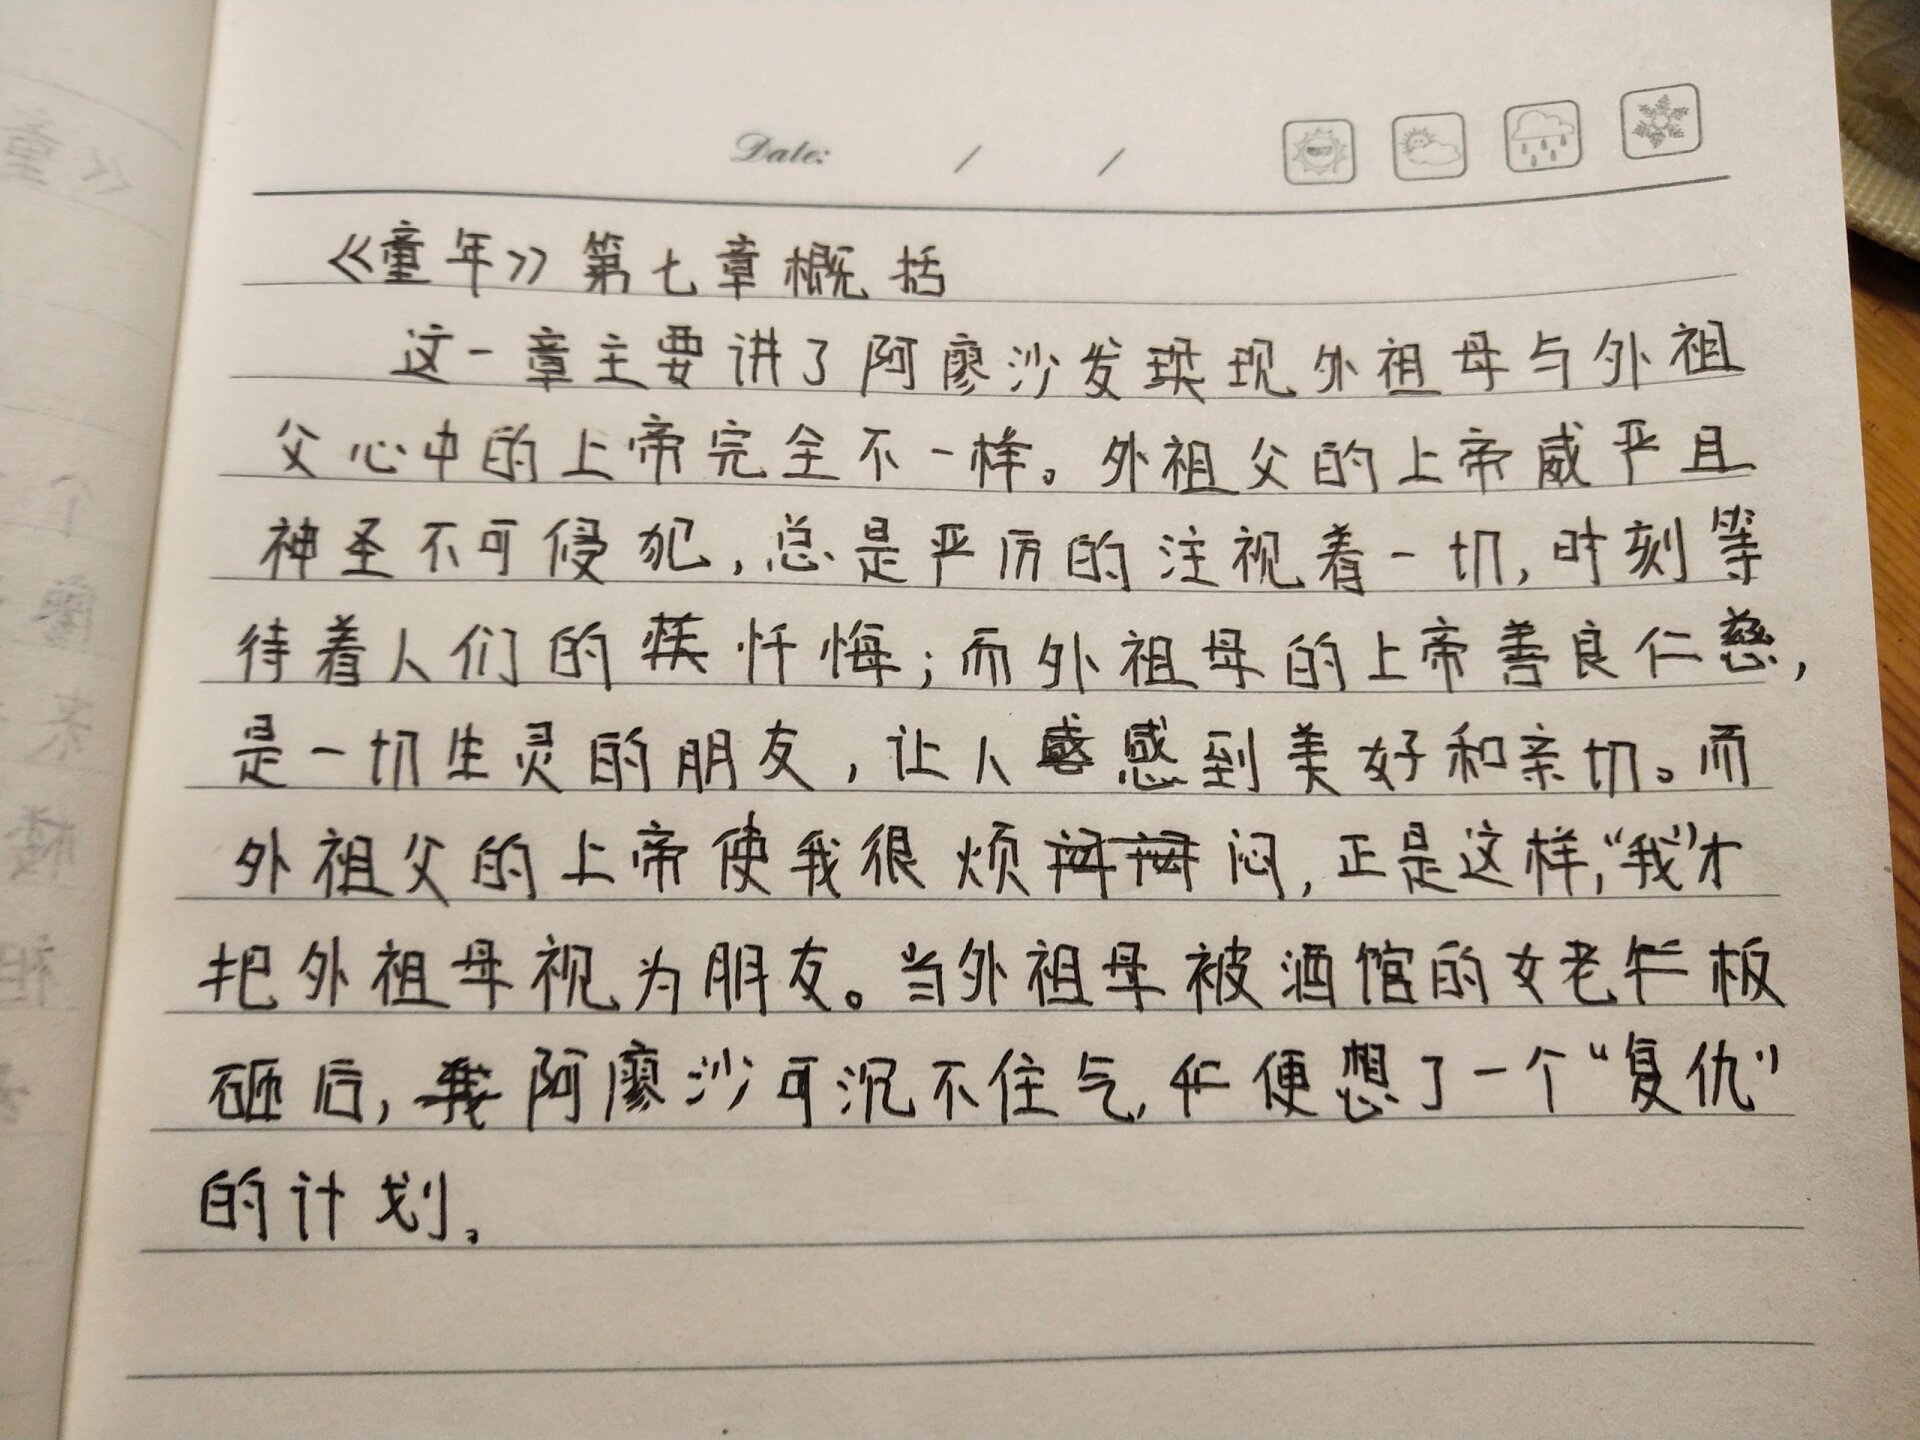 Date: / /
《童年》第七章概括
这一章主要讲了阿廖沙发现外祖母与外祖
父心中的上帝完全不一样。外祖父的上帝威严且
神圣不可侵犯,总是严厉的注视着一切,时刻等
待着人们的忏悔;而外祖母的上帝善良仁慈,
是一切生灵的朋友,让人感到美好和亲切。而
外祖父的上帝使我很烦闷,正是这样,“我”才
把外祖母视为朋友。当外祖母被酒馆的女老板
砸后,阿廖沙可沉不住气,便想了一个“复仇”
的计划。